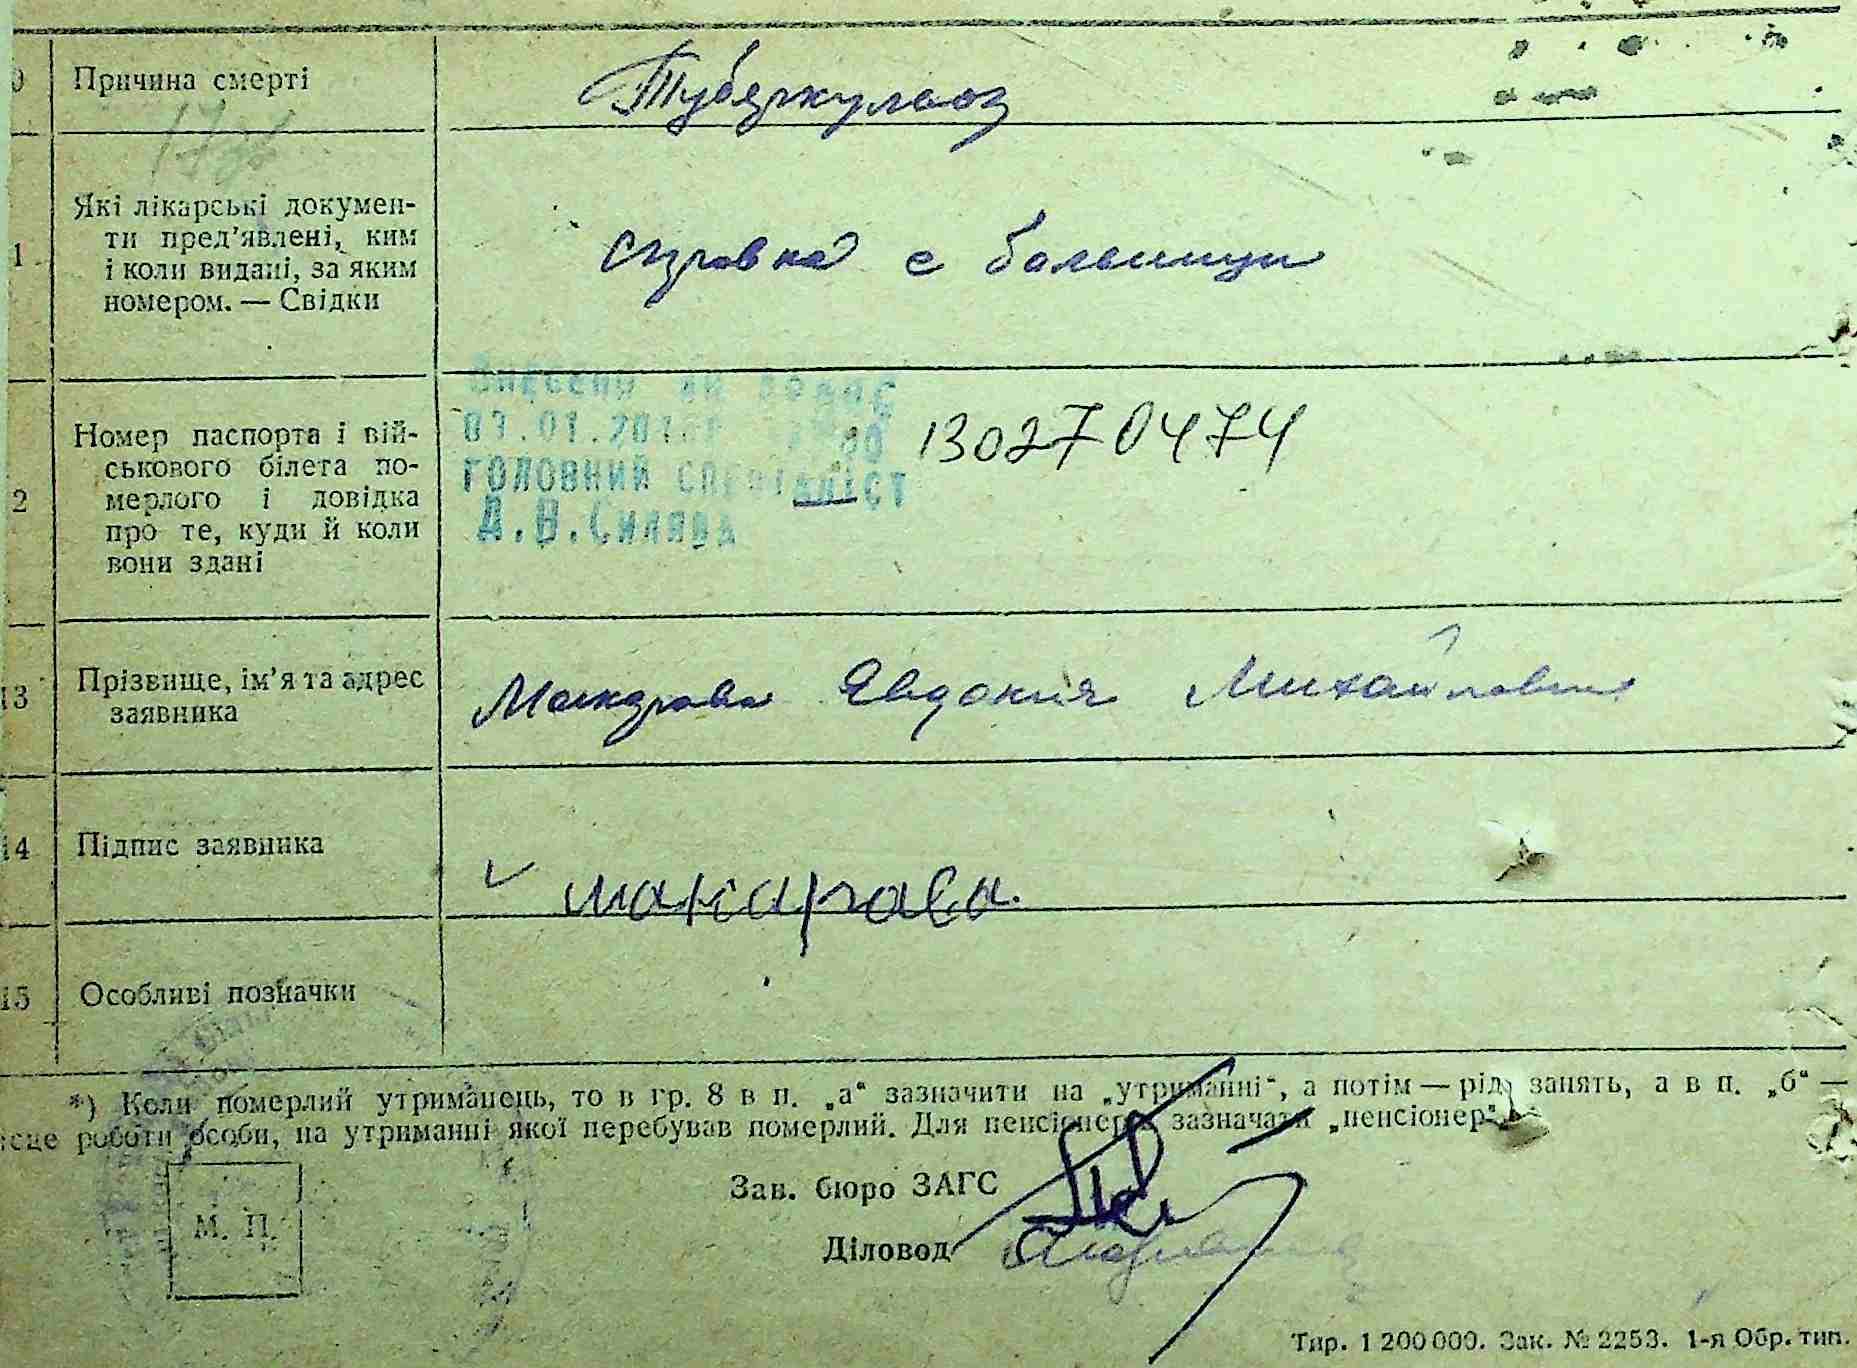 Причина смерті
Туберкулоз
Які лікарські докумен-
ти пред'явлені, ким
і коли видані, за яким
номером. — Свідки
Справка с больници
Номер паспорта і вій-
ськового білета по-
мерлого і довідка
про те, куди й коли
вони здані
ВНЕСЕНО
ГОЛОВНИЙ СПЕЦІАЛІСТ
130270474
13
Прізвище, ім'я та адрес
заявника
Евдокия Михайловна
14
Підпис заявника
15
Особливі позначки
*) Коли померлий утриманець, то в гр. 8 в п. „а“ зазначити на „утриманні“, а потім — рід занять, а в п. „б“ —
роботи особи, на утриманні якої перебував померлий. Для пенсіонера зазначати „пенсіонер“.
Зав. бюро ЗАГС
М. П.
Діловод
Тир. 1 200 000. Зак. № 2253. 1-я Обр. тип.